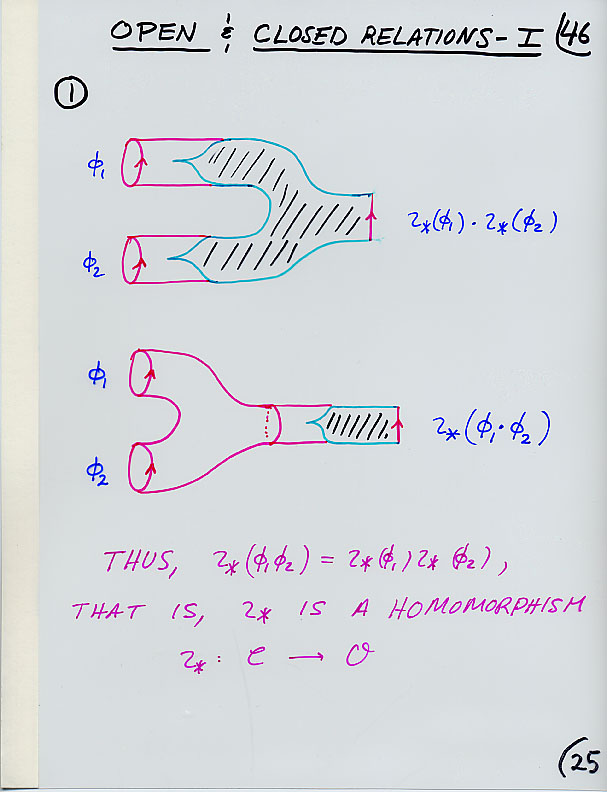 OPEN & CLOSED RELATIONS - I (46
①
ϕ₁
ι*(ϕ₁) · ι*(ϕ₂)
ϕ₂
ϕ₁
ι*(ϕ₁·ϕ₂)
ϕ₂
THUS, ι*(ϕ₁ϕ₂) = ι*(ϕ₁) ι*(ϕ₂),
THAT IS, ι* IS A HOMOMORPHISM
ι* : C → O
(25